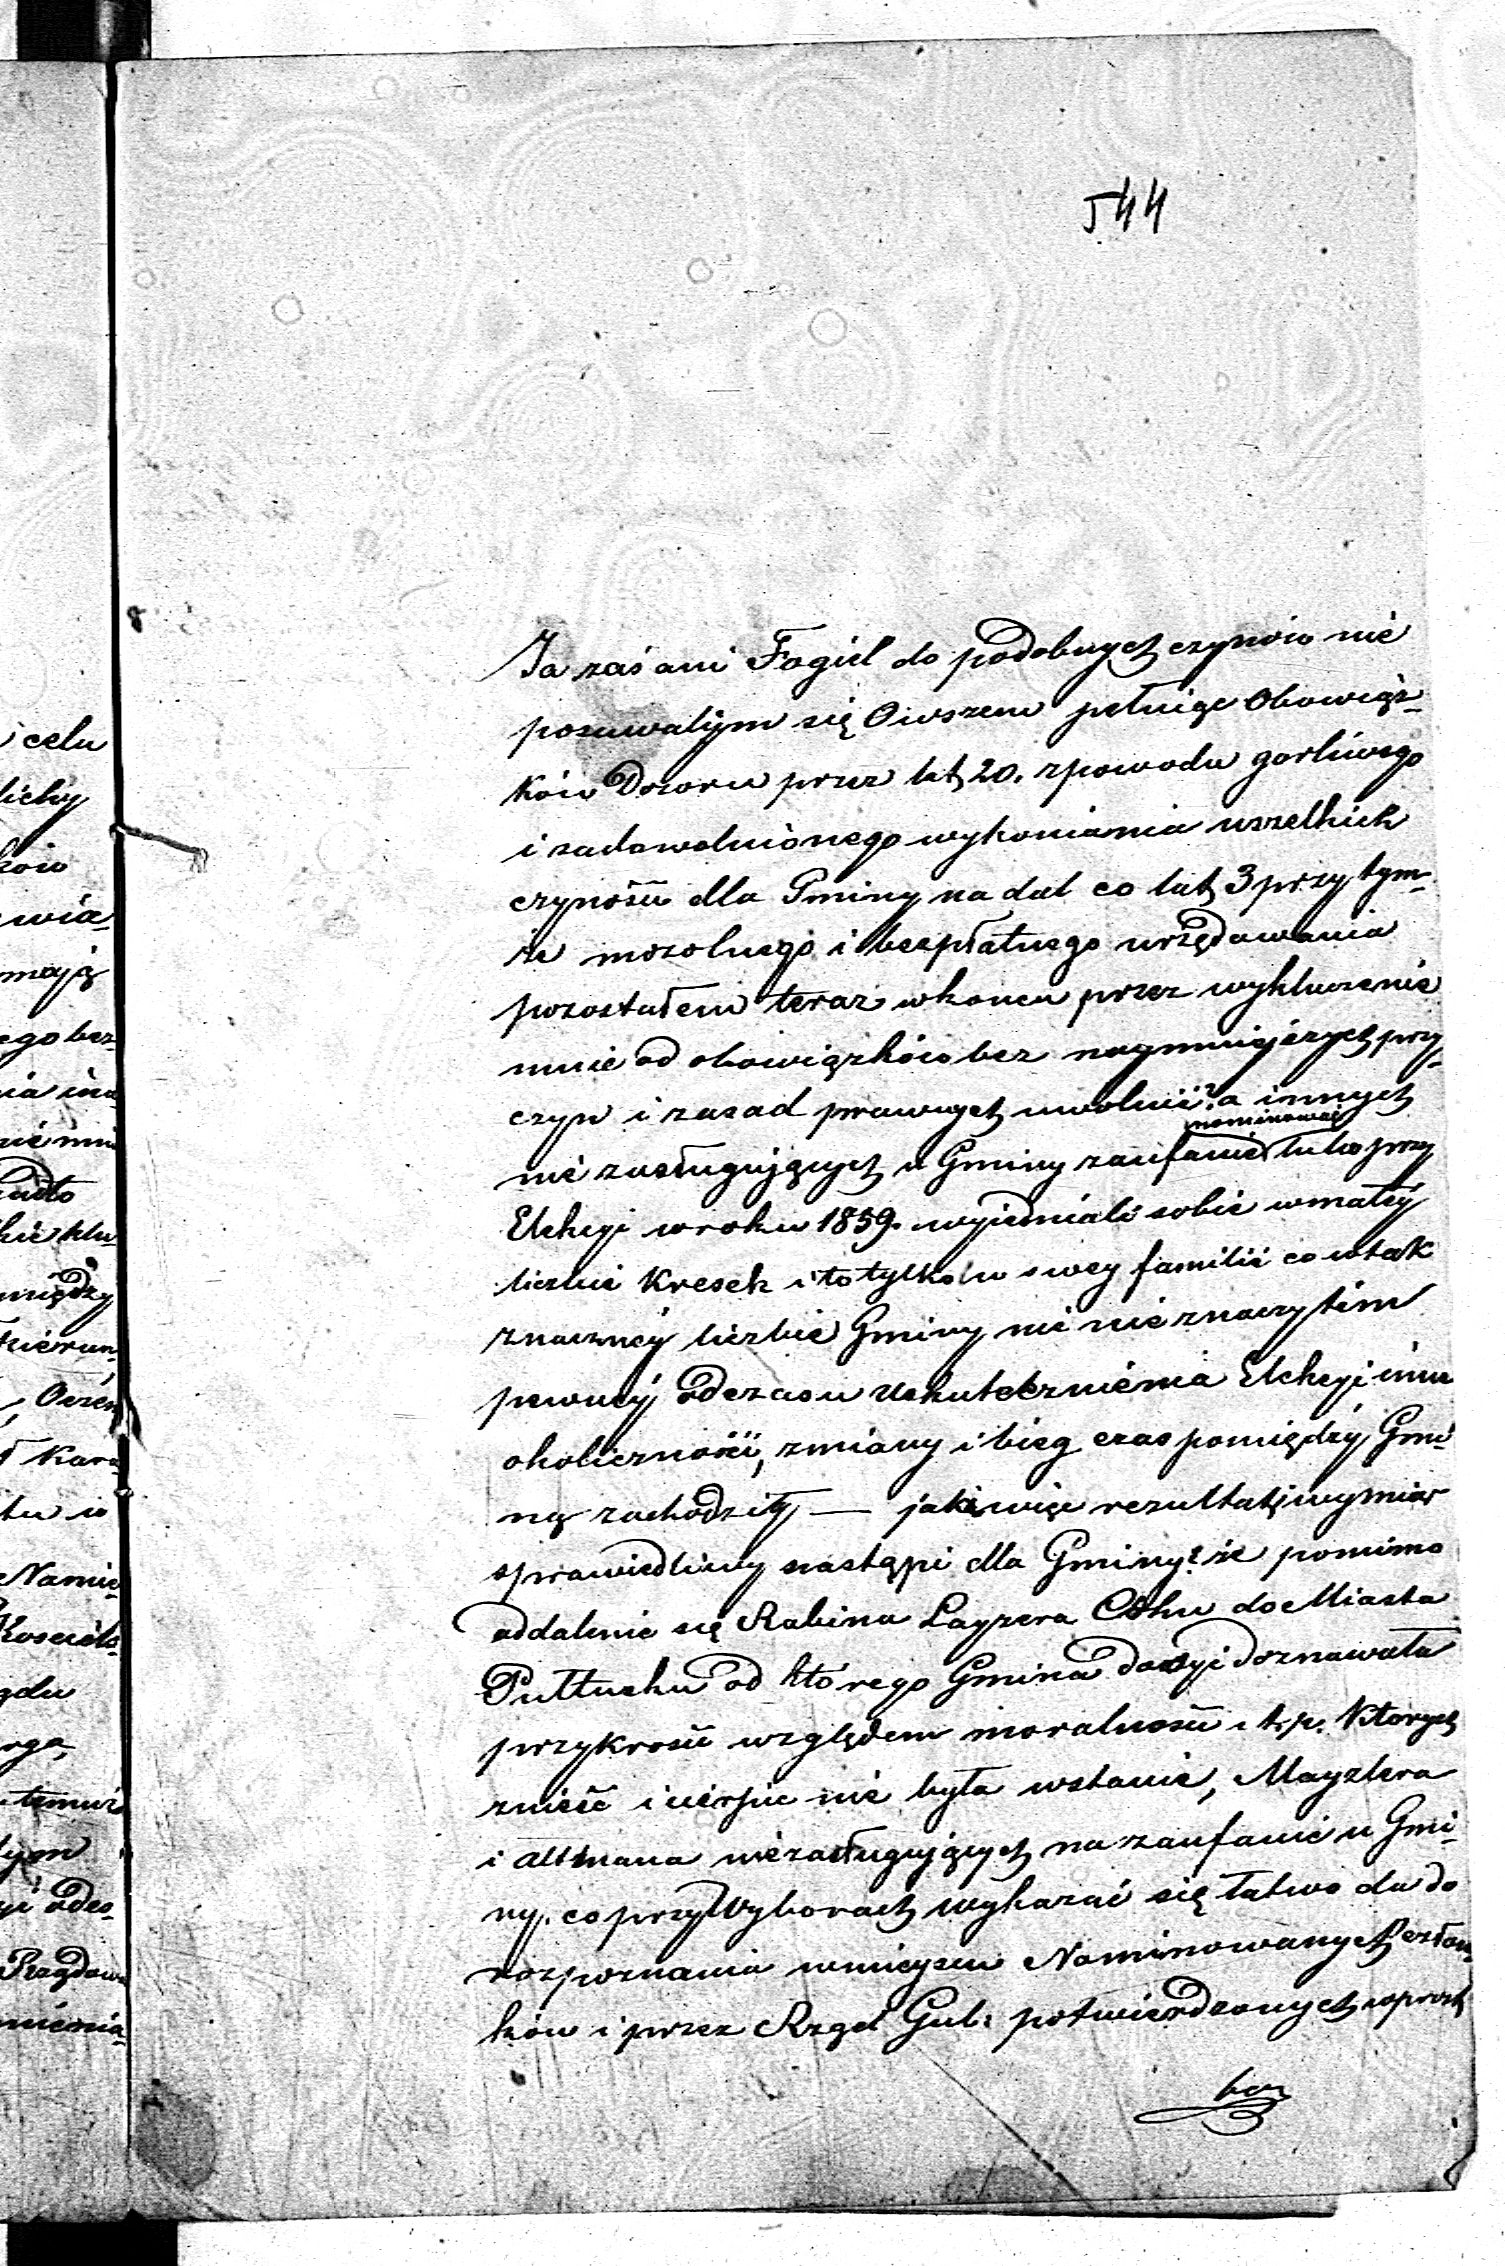 544
Ja zaś ani Fogiel do podobnych czynów nie
posuwaliśm się Owszem pełniąc Obowiąz-
ków Dozoru przez lat 20. zpowodu gorliwego
i zadowolnionego wykonania wszelkich
czyności dla Gminy na dal co lat 3 przy tym-
że mozolnego i bezpłatnego urzędowania
pozostałem teraz wkońcu przez wykluczenie
mnie od obowiązków bez naymniejszych przy-
czyn i zasad prawnych uwolnić? a innych
nominować
nie zasługujących u Gminy zaufanie lubo przy
Elekcyi w roku 1859. wyiednali sobie wmałej
liczbie Kresek i to tylko w swey familii co wtak
znaczney liczbie Gminy nic nie znaczy tem
pewniej od czasu uskutecznienia Elekcyi inne
okoliczności, zmiany i bieg czas pomiędzy Gmi
ną zachodziły — jaki więc rezultat i wymiar
sprawiedliwy nastąpi dla Gminy? że pomimo
oddalenie się Rabina Layzera Cohn do Miasta
Pułtuska od którego Gmina dosyć doznawała
przykrości względem moralności i t.p. Których
znieść i cierpić nie była wstanie, Mayzlera
i Altmana niezasługujących na zaufanie u Gmi-
ny, co przy Wyborach wykazać się łatwo da do
rozpoznania wmieyscu Nominowanych Człon-
ków i przez Rząd Gub: potwierdzonych oproch
i celu
ków
wia-
mają
ego bez-
między
Kara-
Namie-
rga,